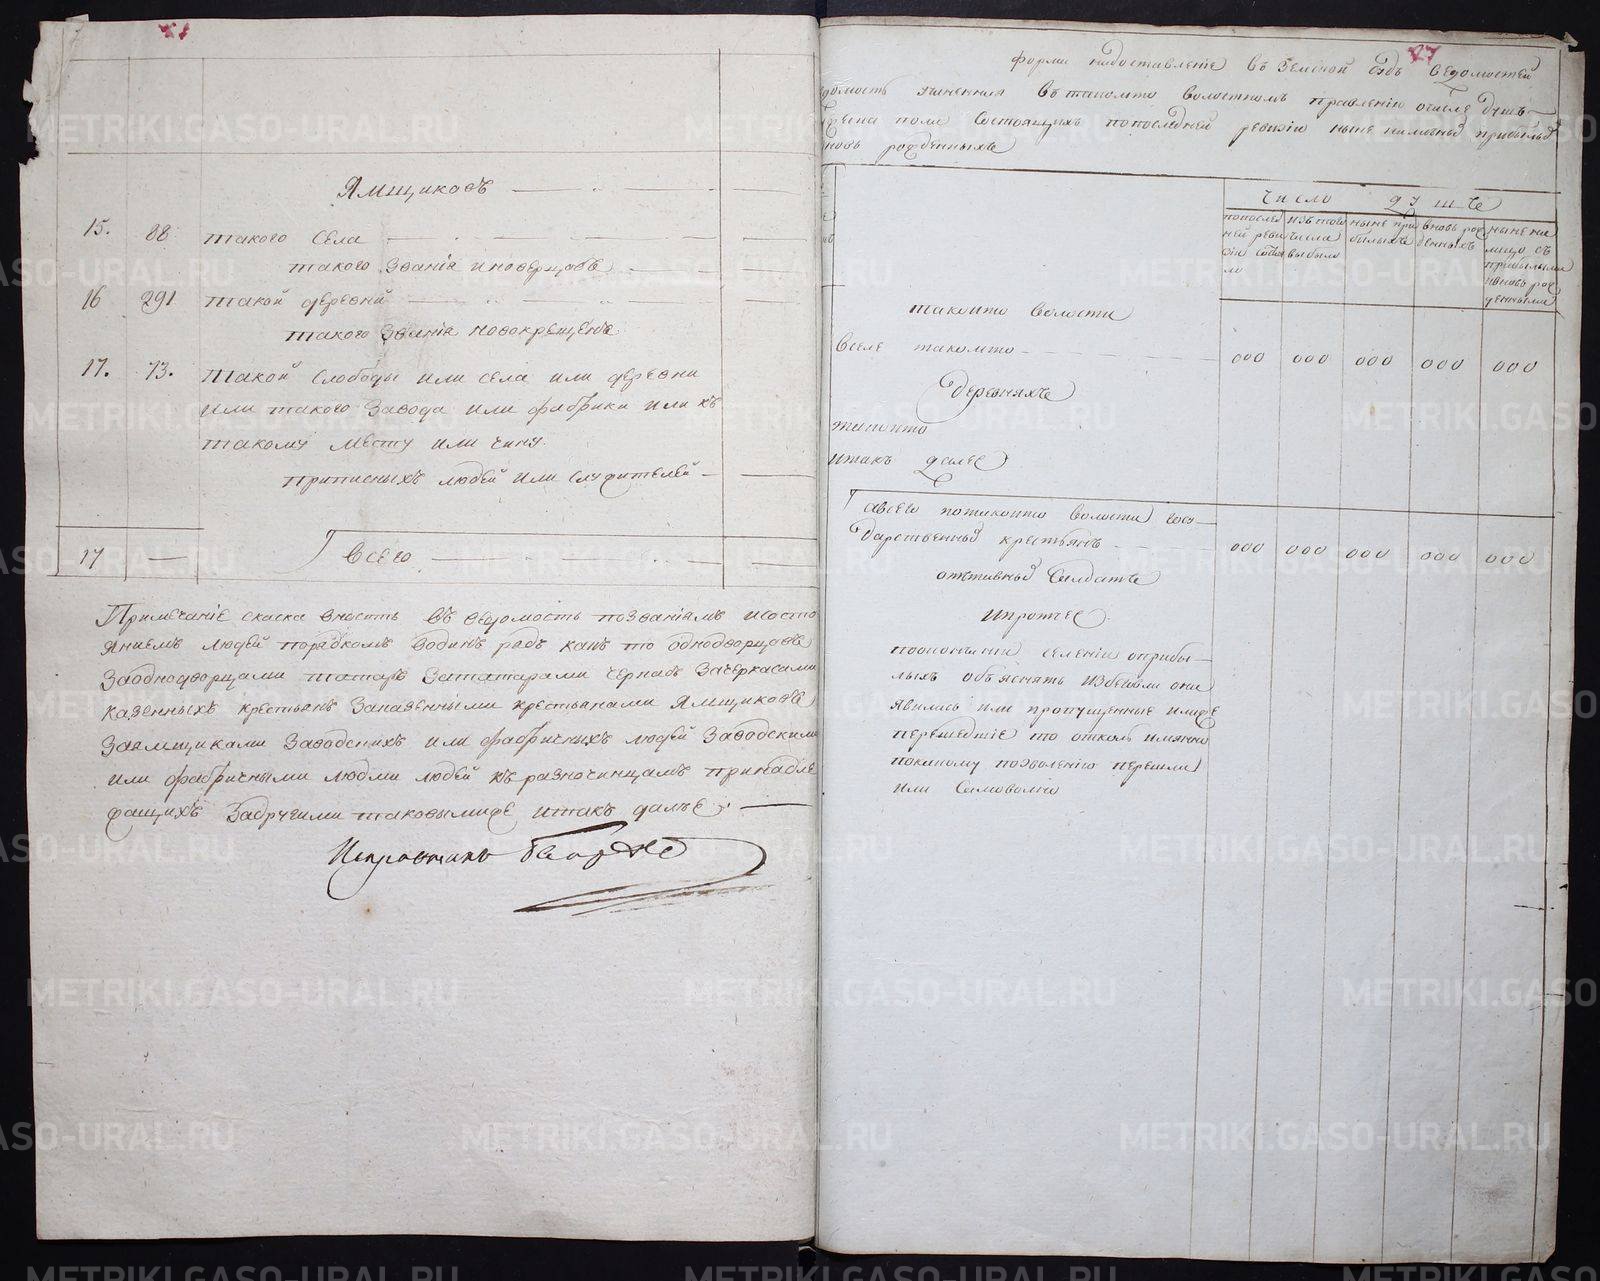 Ямщиковъ
15. 88 такого села
такого званія иноверцовъ
16 291 такой деревни
такого званія новокрещенъ
17. 73. такой слободы или села или деревни
или такого завода или фабрики или къ
такому месту или чину
приписныхъ людей или служителей
17 — Всего
Примечаніе скаска вность въ ведомость позваніямъ исосто
яніемъ людей порядкомъ водинъ рядъ какъ то однодворцовъ
заоднодворцами татаръ зататарами черкасъ зачеркасами
казенныхъ крестьянъ заказенными крестьянами ямщиковъ
заямщиками заводскихъ или фабричныхъ людей заводскими
или фабричными людми людей къ разночинцамъ принадле
жащихъ задругими таковымиже итакъ далѣе
Исправникъ
27
форма надоставленіе въ земской судъ ведомостей
домость учиненная въ такомто волостномъ правленіи очисле душъ
пола состоящихъ попоследней ревизіи ныне прибылыхъ
новь рожденныхъ
число душъ
попослед ней реви зіи состоя ло
изъ того числа выбыло
ныне при былыхъ
вновь рож денныхъ
ныне на лицо съ прибылыми ивновь рож денными
такойто волости
Вселе такомто 000 000 000 000 000
деревняхъ
такойто
итакъ далее
авсего потакойто волости госу
дарственныхъ крестьянъ 000 000 000 000 000
отставныхъ солдатъ
ипротчее
селеніи оприбы
лыхъ объяснять избеговли они
явились или пропущенные илиже
перешедшіе то отколь имянно
покакому позволенію перешли
или самовольно
METRIKI.GASO-URAL.RU